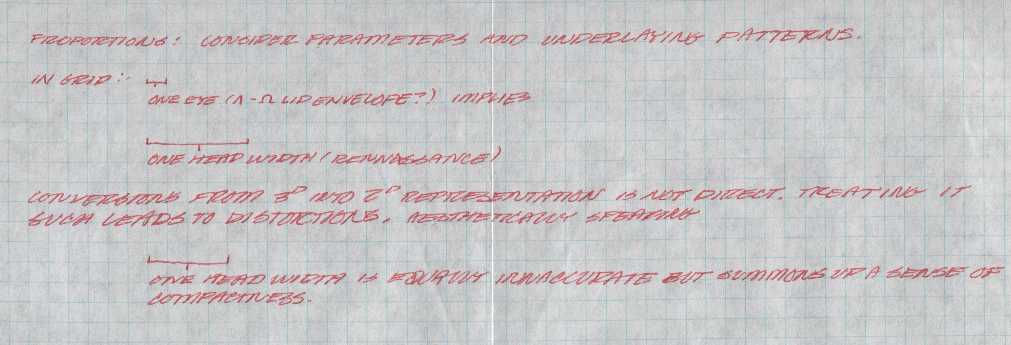 PROPORTIONS: CONCIDER PARAMETERS AND UNDERLAYING PATTERNS.
IN GRID:
ONE EYE (Λ-Ω LID ENVELOPE?) IMPLIES
ONE HEAD WIDTH (RENNASSANCE)
CONVERSIONS FROM 3ᴰ INTO 2ᴰ REPRESENTATION IS NOT DIRECT. TREATING IT
SUCH LEADS TO DISTORTIONS, AESTHETICALLY SPEAKING
ONE HEAD WIDTH IS EQUALLY INNACCURATE BUT SUMMONS UP A SENSE OF
COMPACTNESS.